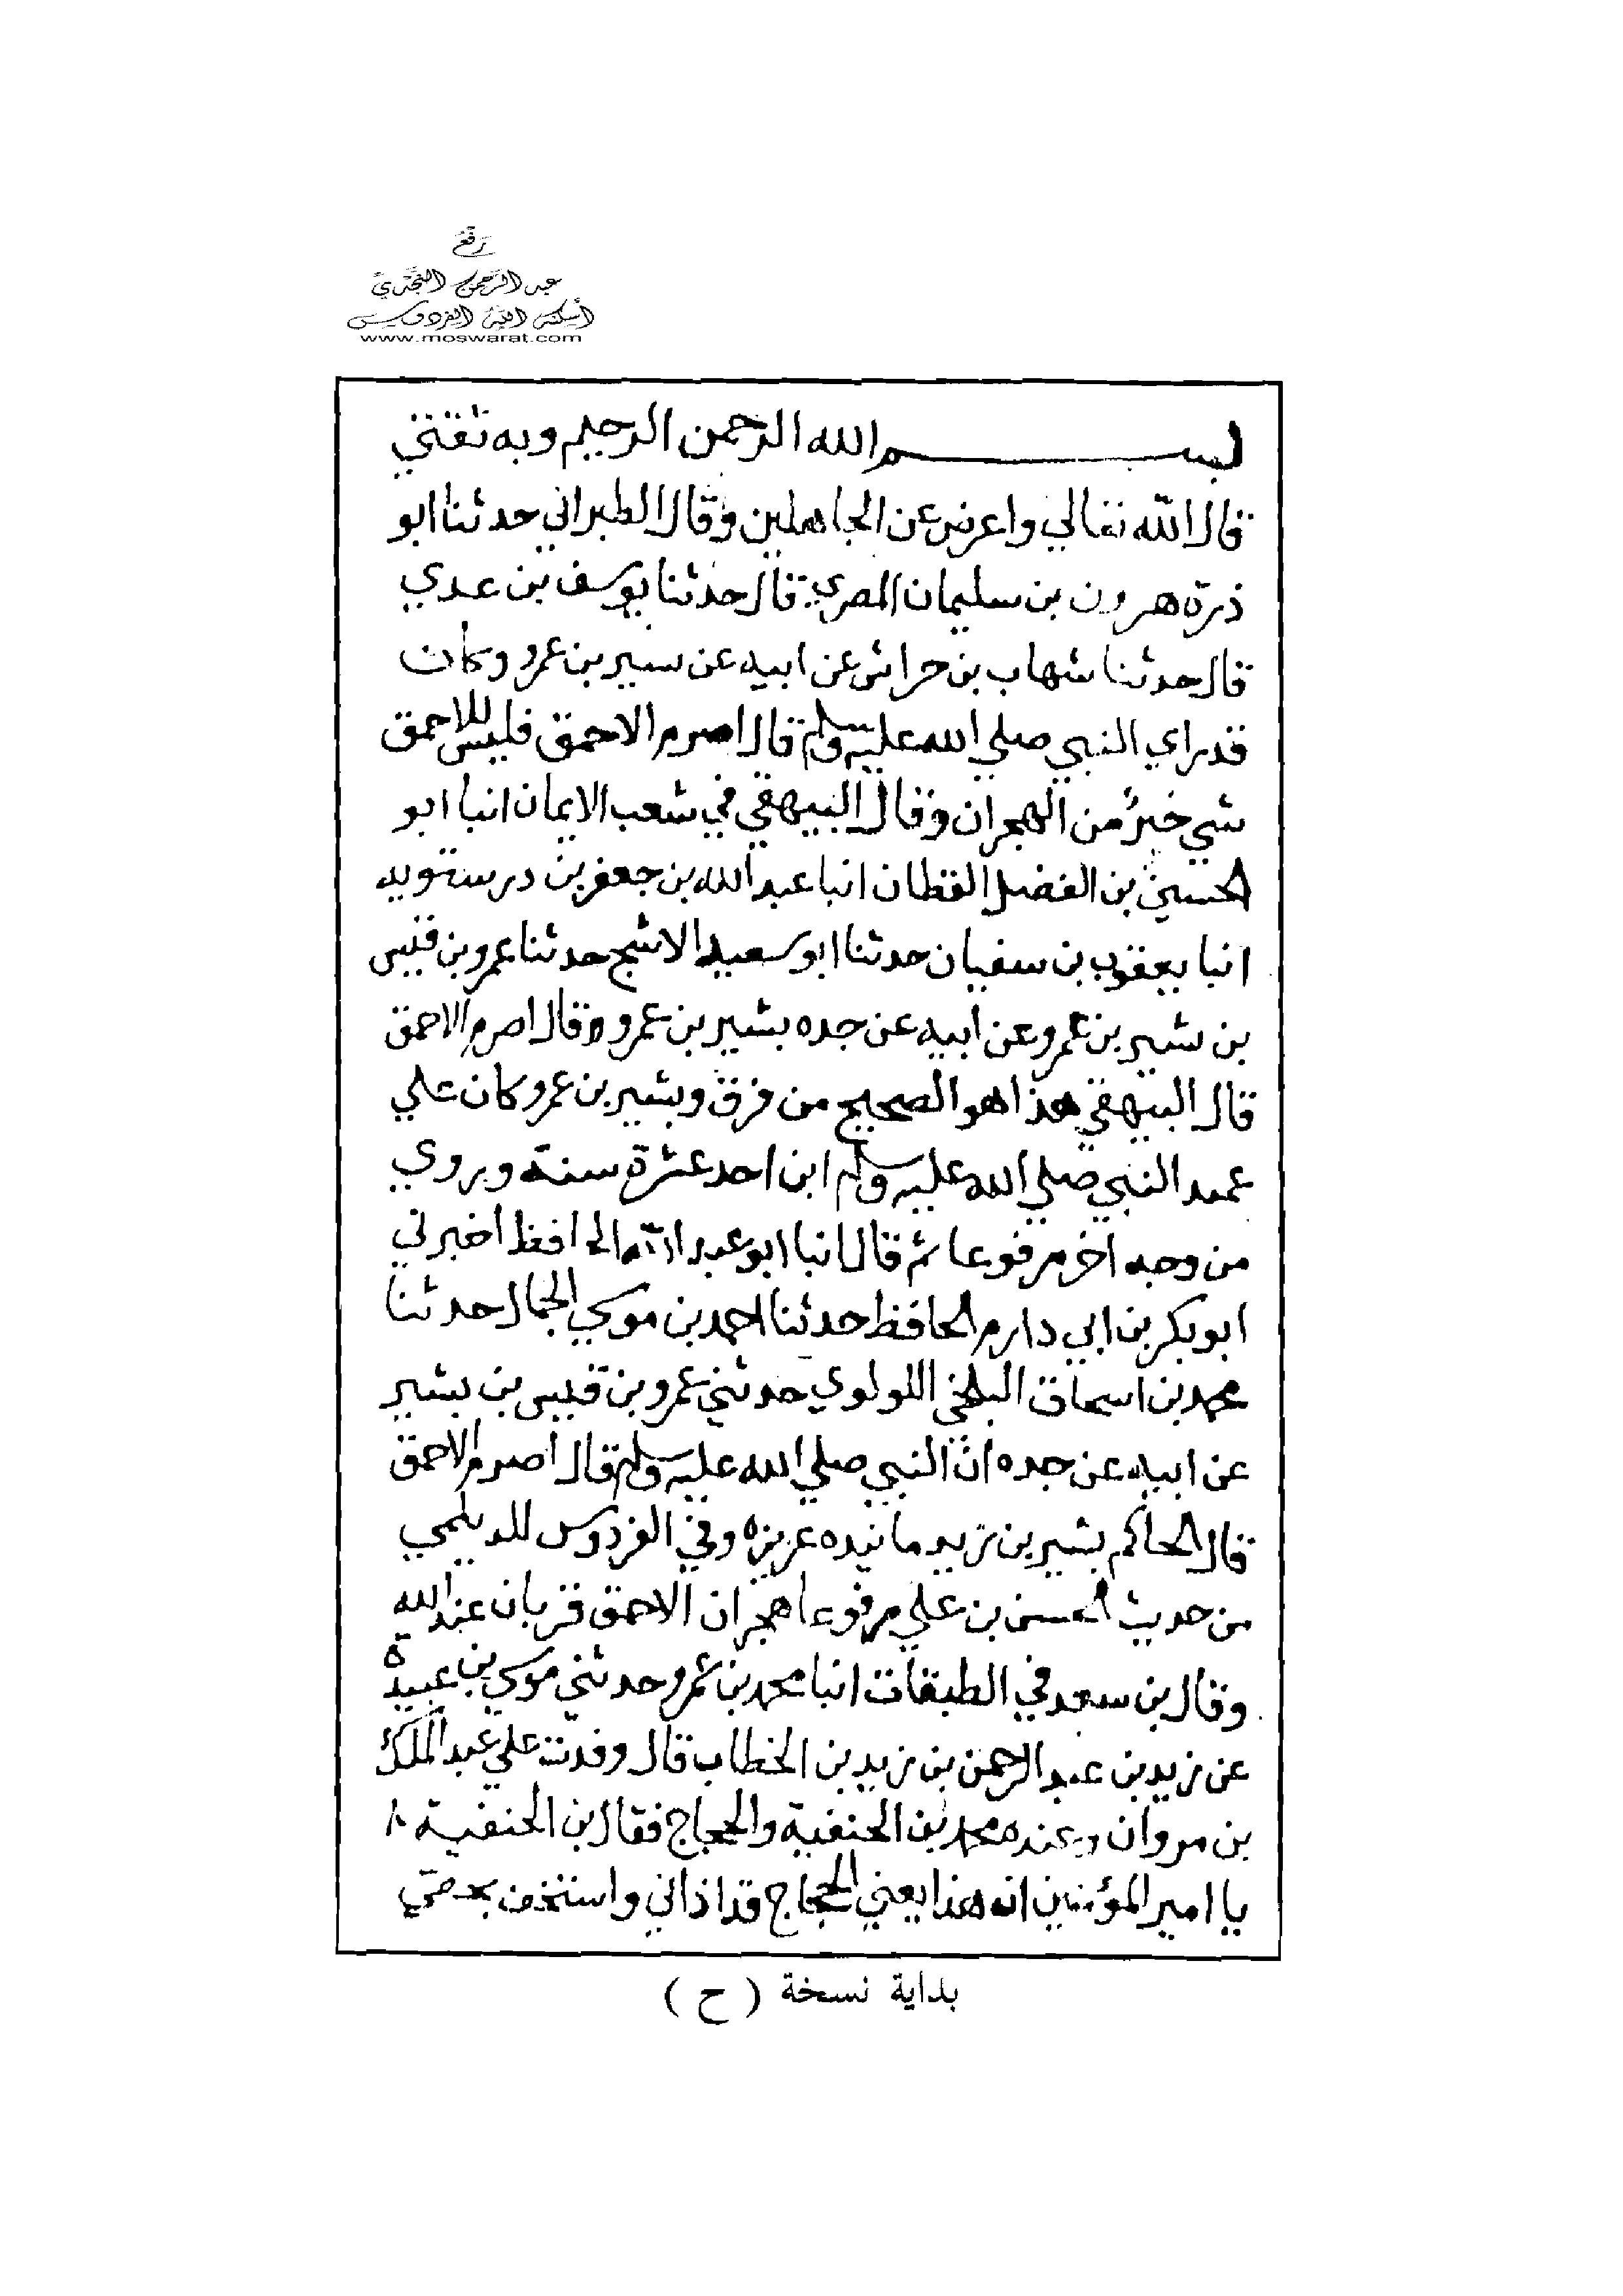 رفع
عبد الرحمن النجدي
أسكنه الله الفردوس
www.moswarat.com
بسم الله الرحمن الرحيم وبه ثقتي
قال الله تعالي واعرض عن الجاهلين وقال الطبراني حدثنا ابو
ذرة هرون بن سليمان المصري قال حدثنا يوسف بن عدي
قال حدثنا شهاب بن خراش عن ابيه عن سيير بن عمرو وكان
قد راي النبي صلي الله عليه وسلم قال اصرم الاحمق فليس للاحمق
شي خير من الهجران وقال البيهقي في شعب الايمان انبا ابو
الحسين بن الفضل القطان انبا عبد الله بن جعفر بن درستويه
انبا يعقوب بن سفيان حدثنا ابو سعيد الاشج حدثنا عمرو بن قيس
بن شيير بن عمرو عن ابيه عن جده بشير بن عمرو قال اصرم الاحمق
قال البيهقي هذا هو الصحيح من فرق وبشير بن عمرو كان علي
عهد النبي صلي الله عليه وسلم ابن احد عشرة سنة وروي
من وجه اخر مرفوعا ثم قال انبا ابو عبد الله الحافظ اخبرني
ابو بكر بن ابي دارم الحافظ حدثنا احمد بن موسي الجمال حدثنا
محمد بن اسحاق البلخي اللولوي حدثني عمرو بن قيس بن بشير
عن ابيه عن جده ان النبي صلي الله عليه وسلم قال اصرم الاحمق
قال الحاكم بشير بن زيد عزيزه وفي الفردوس للديلمي
من حديث الحسن بن علي مرفوعا هجران الاحمق قربان عند الله
وقال بن سعد في الطبقات انبا محمد بن عمرو حدثني موسي بن عبيدة
عن زيد بن عبد الرحمن بن زيد بن الخطاب قال وفدت علي عبد الملك
بن مروان وعنده محمد بن الحنفية والحجاج فقال بن الحنفية
يا امير المؤمنين انه هذا يعني الحجاج قد اذاني واستخف بحقي
بداية نسخة ( ح )